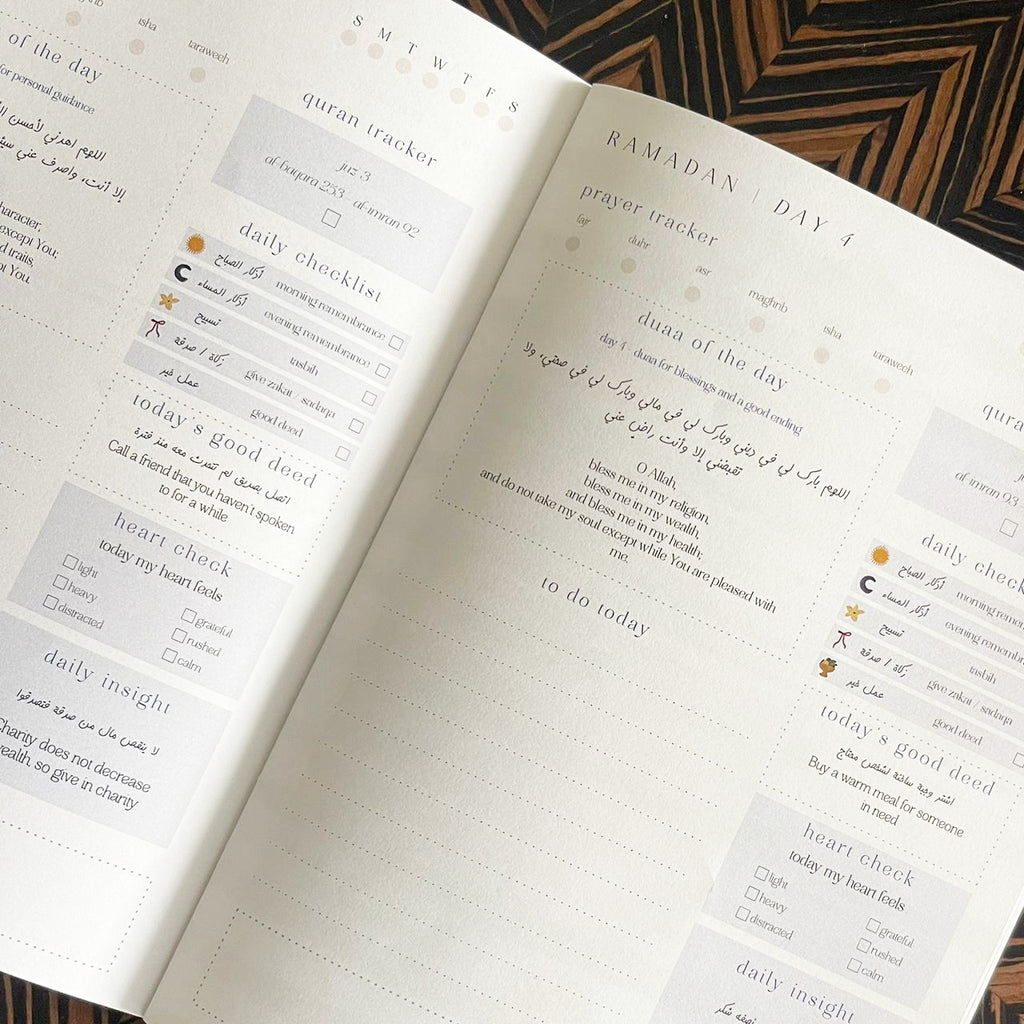 isha
taraweeh
of the day
for personal guidance
اللهم اهدني لأحسن
إلا أنت، واصرف عني
character,
except You;
d traits,
pt You.
S M T W T F S
quran tracker
juz 3
al-baqara 253 - al-imran 92
daily checklist
أذكار الصباح morning remembrance
أذكار المساء evening remembrance
تسبيح tasbih
زكاة / صدقة give zakat / sadaqa
عمل خير good deed
today's good deed
اتصل بصديق لم تتحدث معه منذ فترة
Call a friend that you haven't spoken
to for a while
heart check
today my heart feels
light grateful
heavy rushed
distracted calm
daily insight
لا ينقص مال من صدقة فتصدقوا
Charity does not decrease
wealth, so give in charity
RAMADAN | DAY 4
prayer tracker
fajr duhr asr maghrib isha taraweeh
duaa of the day
day 4 - duaa for blessings and a good ending
اللهم بارك لي في ديني وبارك لي في مالي وبارك لي في صحتي، ولا
تقبضني إلا وأنت راضٍ عني
O Allah,
bless me in my religion,
bless me in my wealth,
and bless me in my health;
and do not take my soul except while You are pleased with
me.
to do today
qura
al-imran 93
daily check
أذكار الصباح morning remem
أذكار المساء evening remembr
تسبيح tasbih
زكاة / صدقة give zakat / sadaqa
عمل خير good deed
today's good deed
اشتر وجبة ساخنة لشخص محتاج
Buy a warm meal for someone
in need
heart check
today my heart feels
light grateful
heavy rushed
distracted calm
daily insight
نصفه شكر